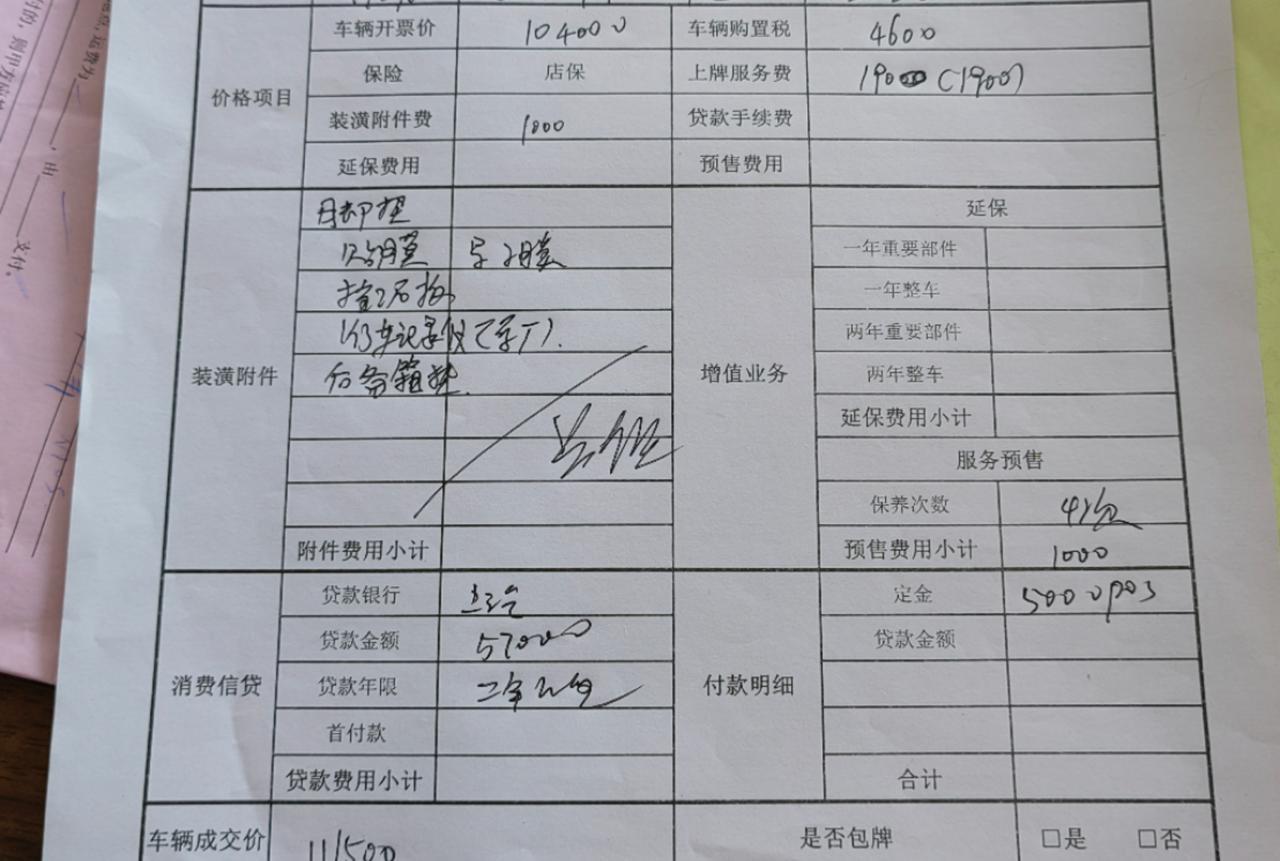 价格项目
车辆开票价 104000 车辆购置税 4600
保险 店保 上牌服务费 1900 (1900)
装潢附件费 1000 贷款手续费
延保费用 预售费用
装潢附件
脚垫
膜
挡泥板
行车记录仪
后备箱垫
附件费用小计
增值业务
延保
一年重要部件
一年整车
两年重要部件
两年整车
延保费用小计
服务预售
保养次数 4次
预售费用小计 1000
消费信贷
贷款银行
贷款金额 57000
贷款年限 二年
首付款
贷款费用小计
付款明细
定金 5000 pos
贷款金额
合计
车辆成交价 111500 是否包牌 □是 □否
支付。